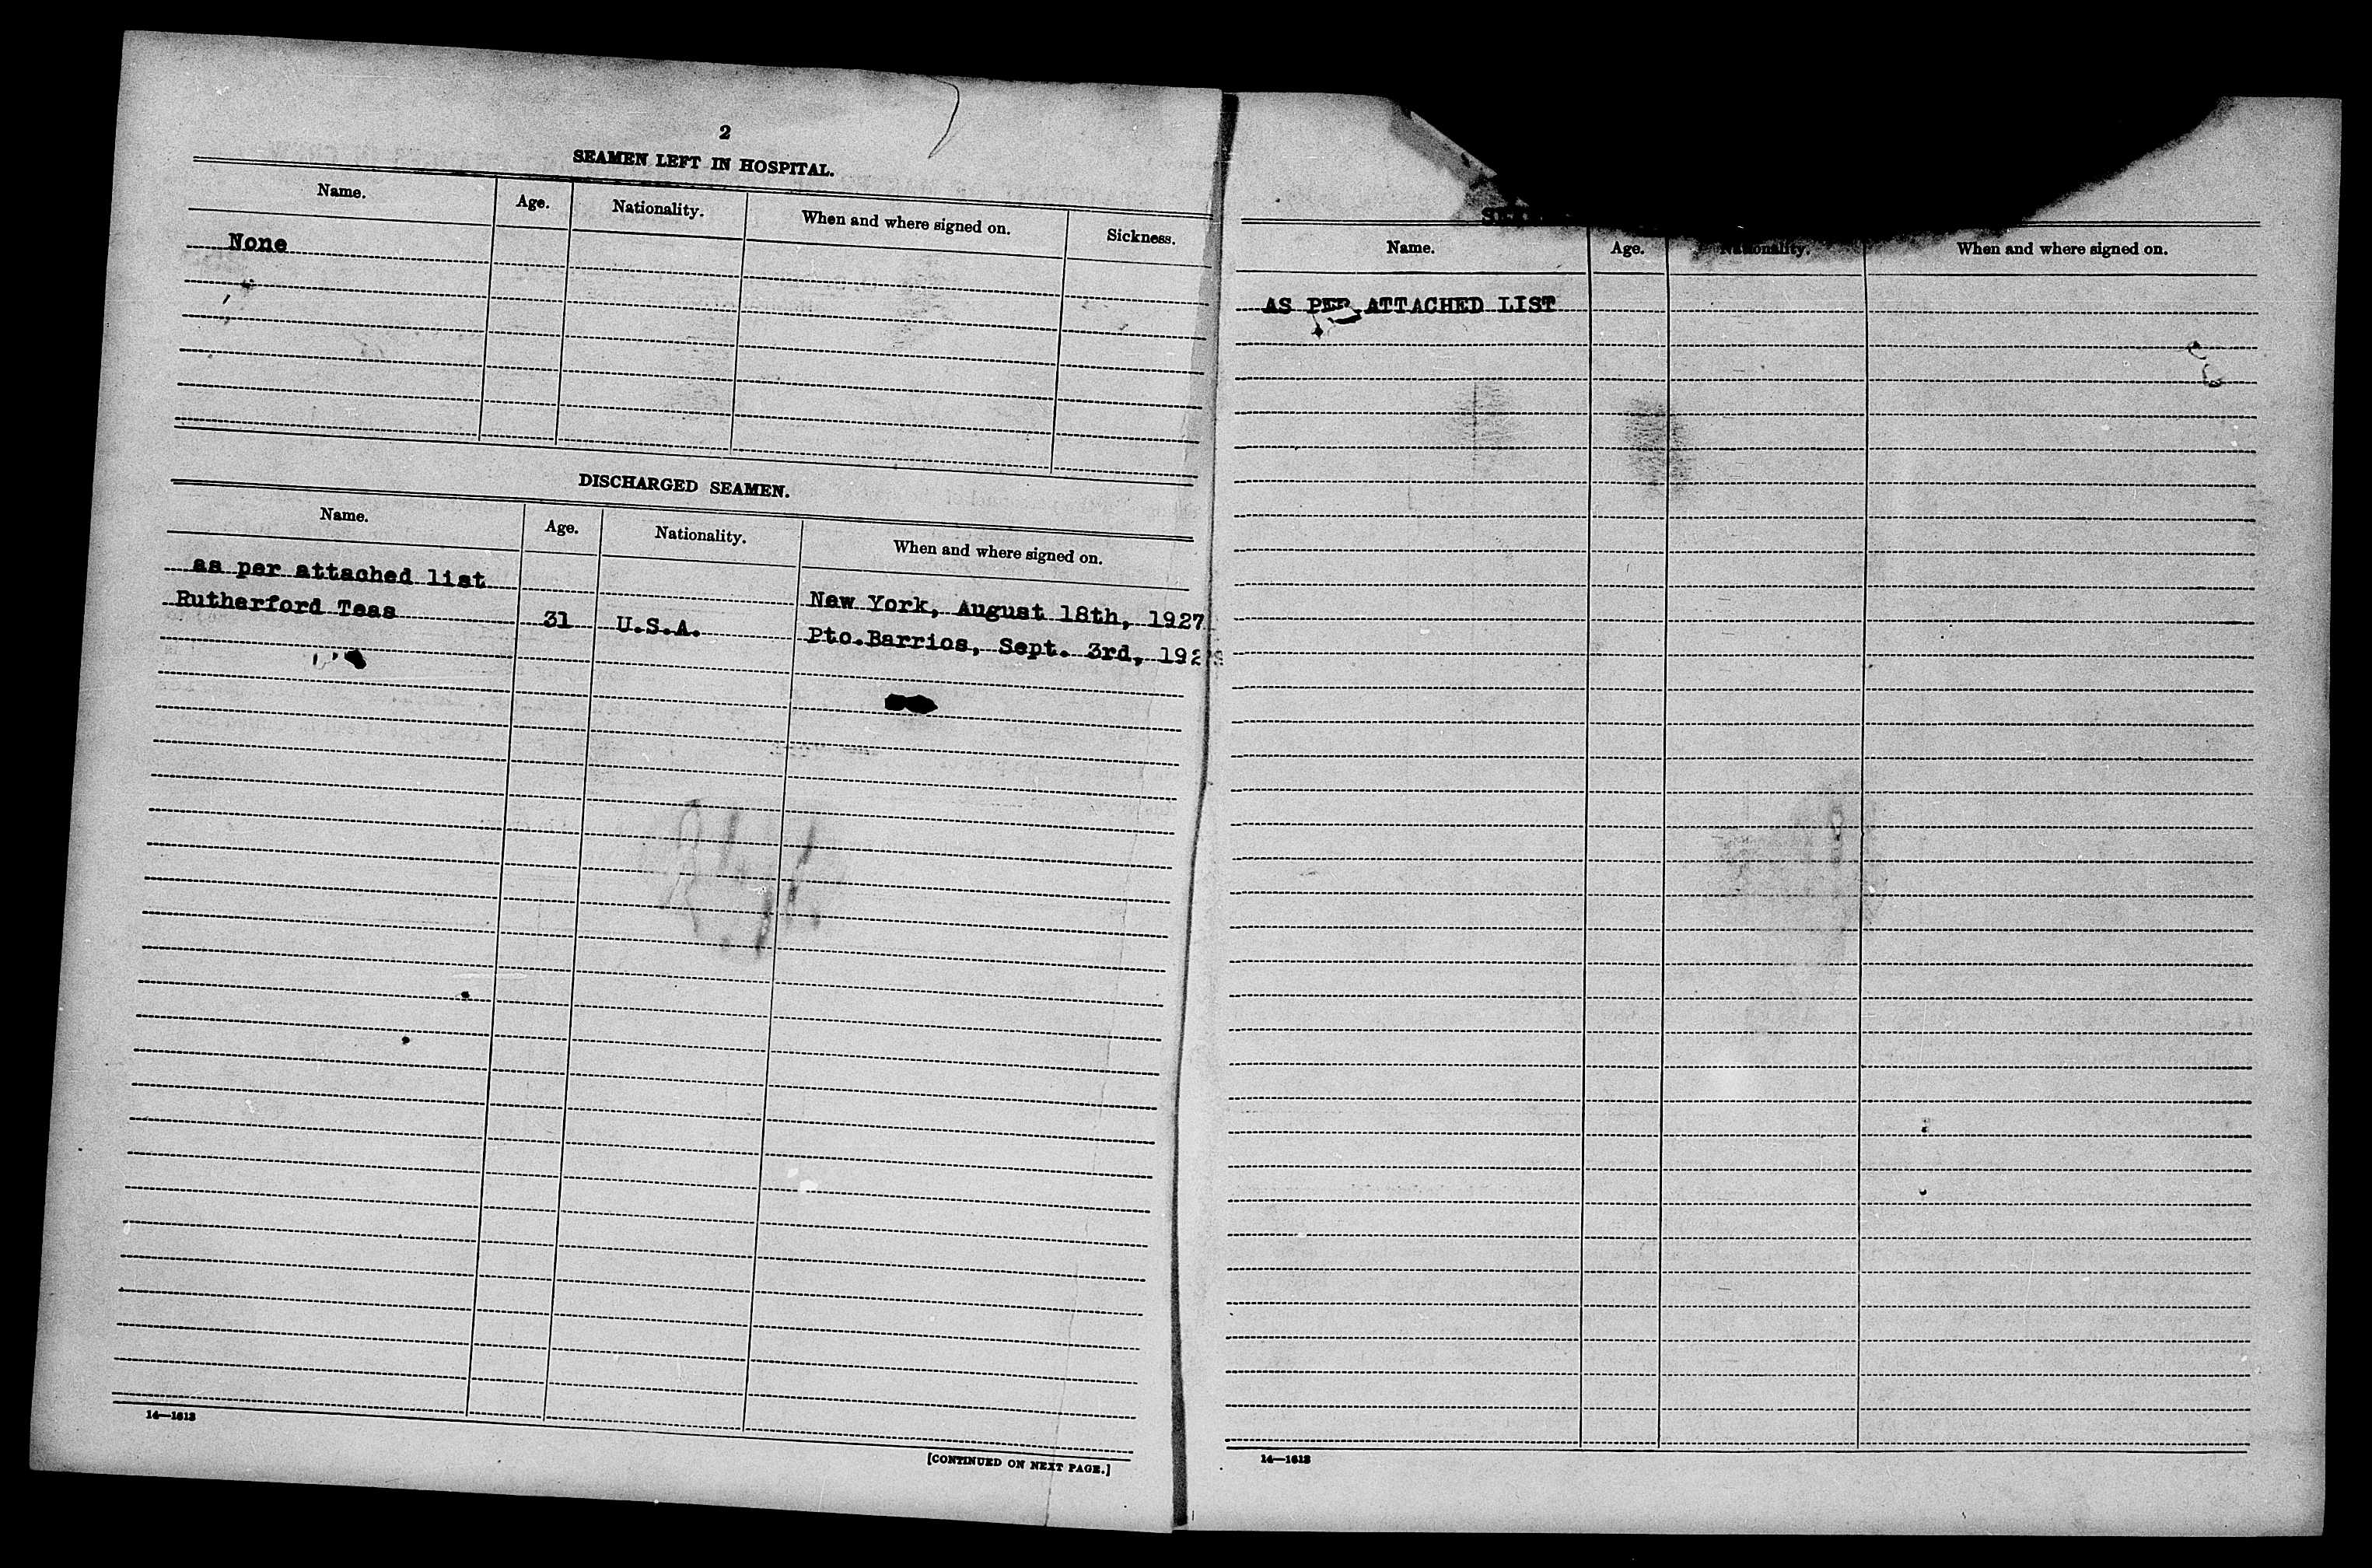 2
SEAMEN LEFT IN HOSPITAL.
Name. Age. Nationality. When and where signed on. Sickness.
None
DISCHARGED SEAMEN.
Name. Age. Nationality. When and where signed on.
as per attached list New York, August 18th, 1927
Rutherford Teas 31 U.S.A. Pto.Barrios, Sept. 3rd,
14—1613
[CONTINUED ON NEXT PAGE.]
Name. Age. Nationality. When and where signed on.
AS PER ATTACHED LIST
14—1613